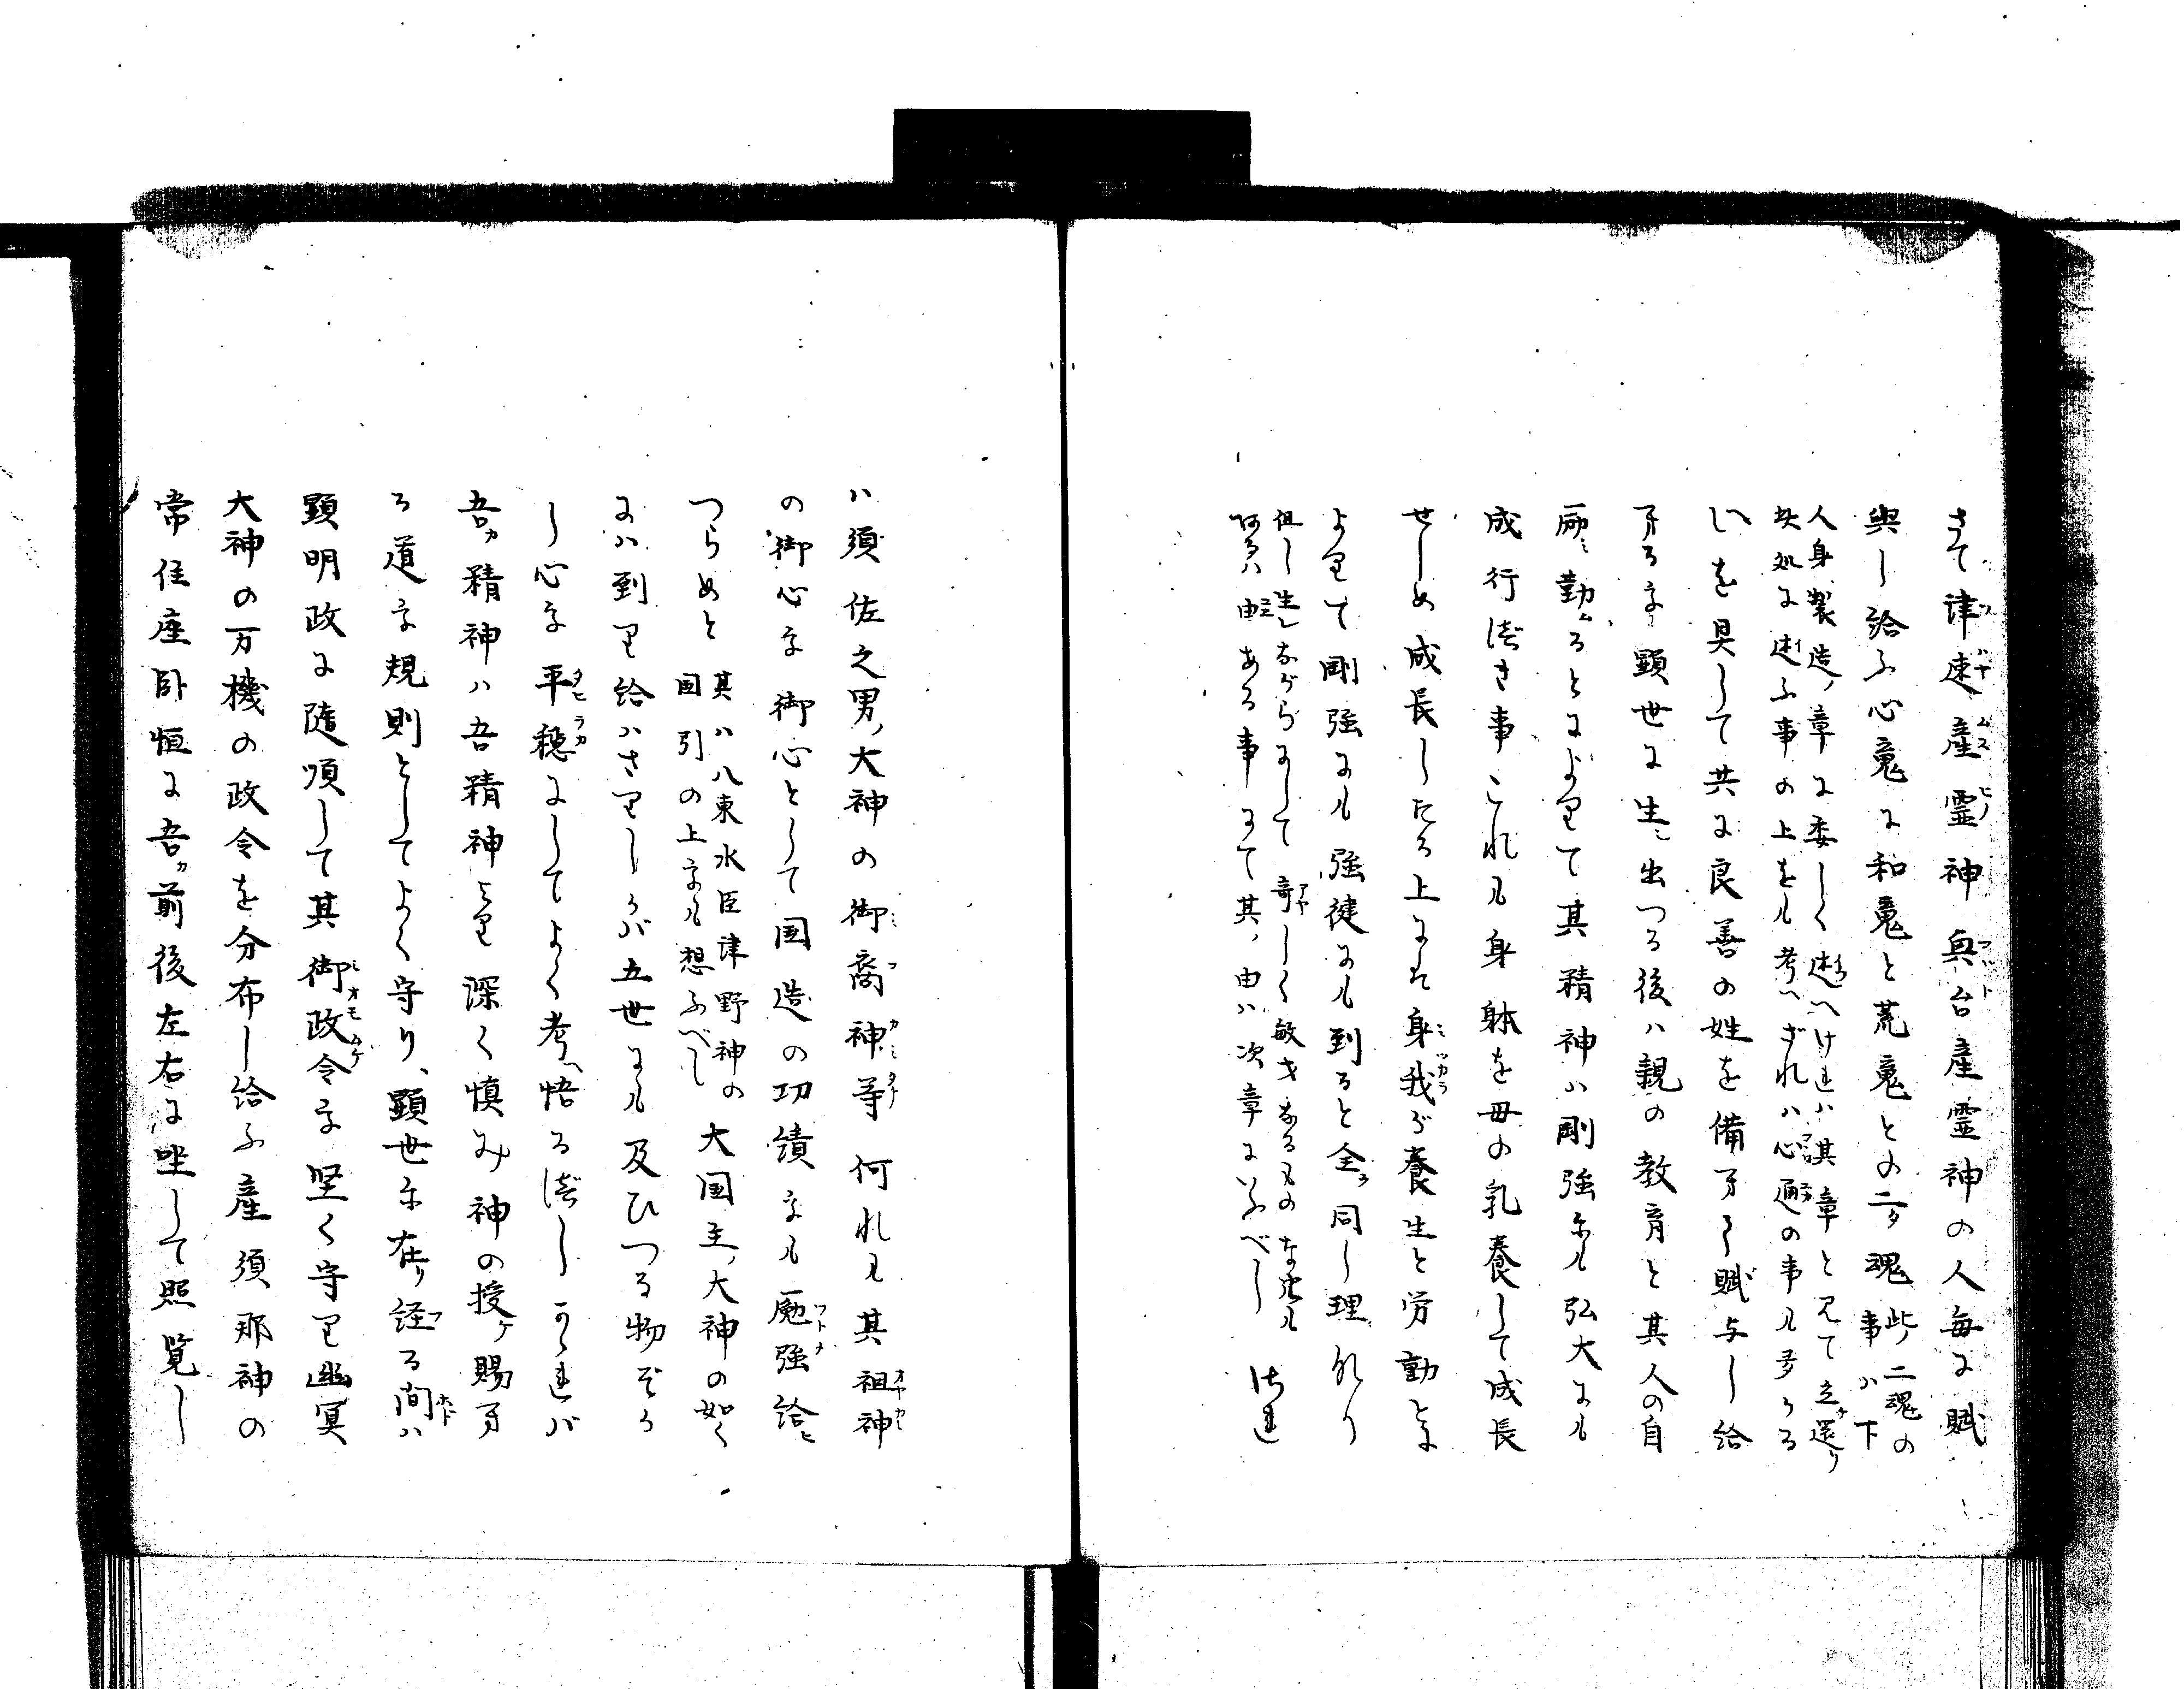 さて津速産霊神興台産霊神の人毎に賦
與し給ふ心魂に和魂と荒魂との二タ魂 此ノ二魂の事ハ下
人身製造ノ章に委しく述へけれハ其章と見て立還り
此処に述ふ事の上をも考へざれハ心の事も多かる
を具して共に良善の姓を備ヘて賦与し給
ヘるを顕世に生レ出つる後ハ親の教育と其人の自
励ミ勤ムるとによりて其精神ハ剛強にも弘大にも
成行べき事これも身躰を母の乳養して成長
せしめ成長したる上にて身我が養生と労動とに
よりて剛強にも強健にも到ると全ク同し理なり
但し生レながらにして奇しく敏きなるもの
あるハ由ある事にて其ノ由ハ次章にいふべし されバ
ハ須佐之男ノ大神の御裔神等何れも其祖神
の御心を御心として国造の功績をも励強給ヒ
つらめと 其ハ八束水臣津野神の国引の上をも想ふべし 大国主ノ大神の如く
にハ到り給ハさりしかバ五世にも及ひつる物ぞかし
し心を平穏にしてよく考ヘ悟るべし かゝれバ
吾カ精神ハ吾精神より深く慎み神の授ケ賜ヘ
る道を規則としてよく守り、顕世に在り経る間ハ
顕明政に随順して其御政令を堅く守り幽冥
大神の万機の政令を分布し給ふ産須那神の
常住座臥恒に吾カ前後左右に坐して照覧し